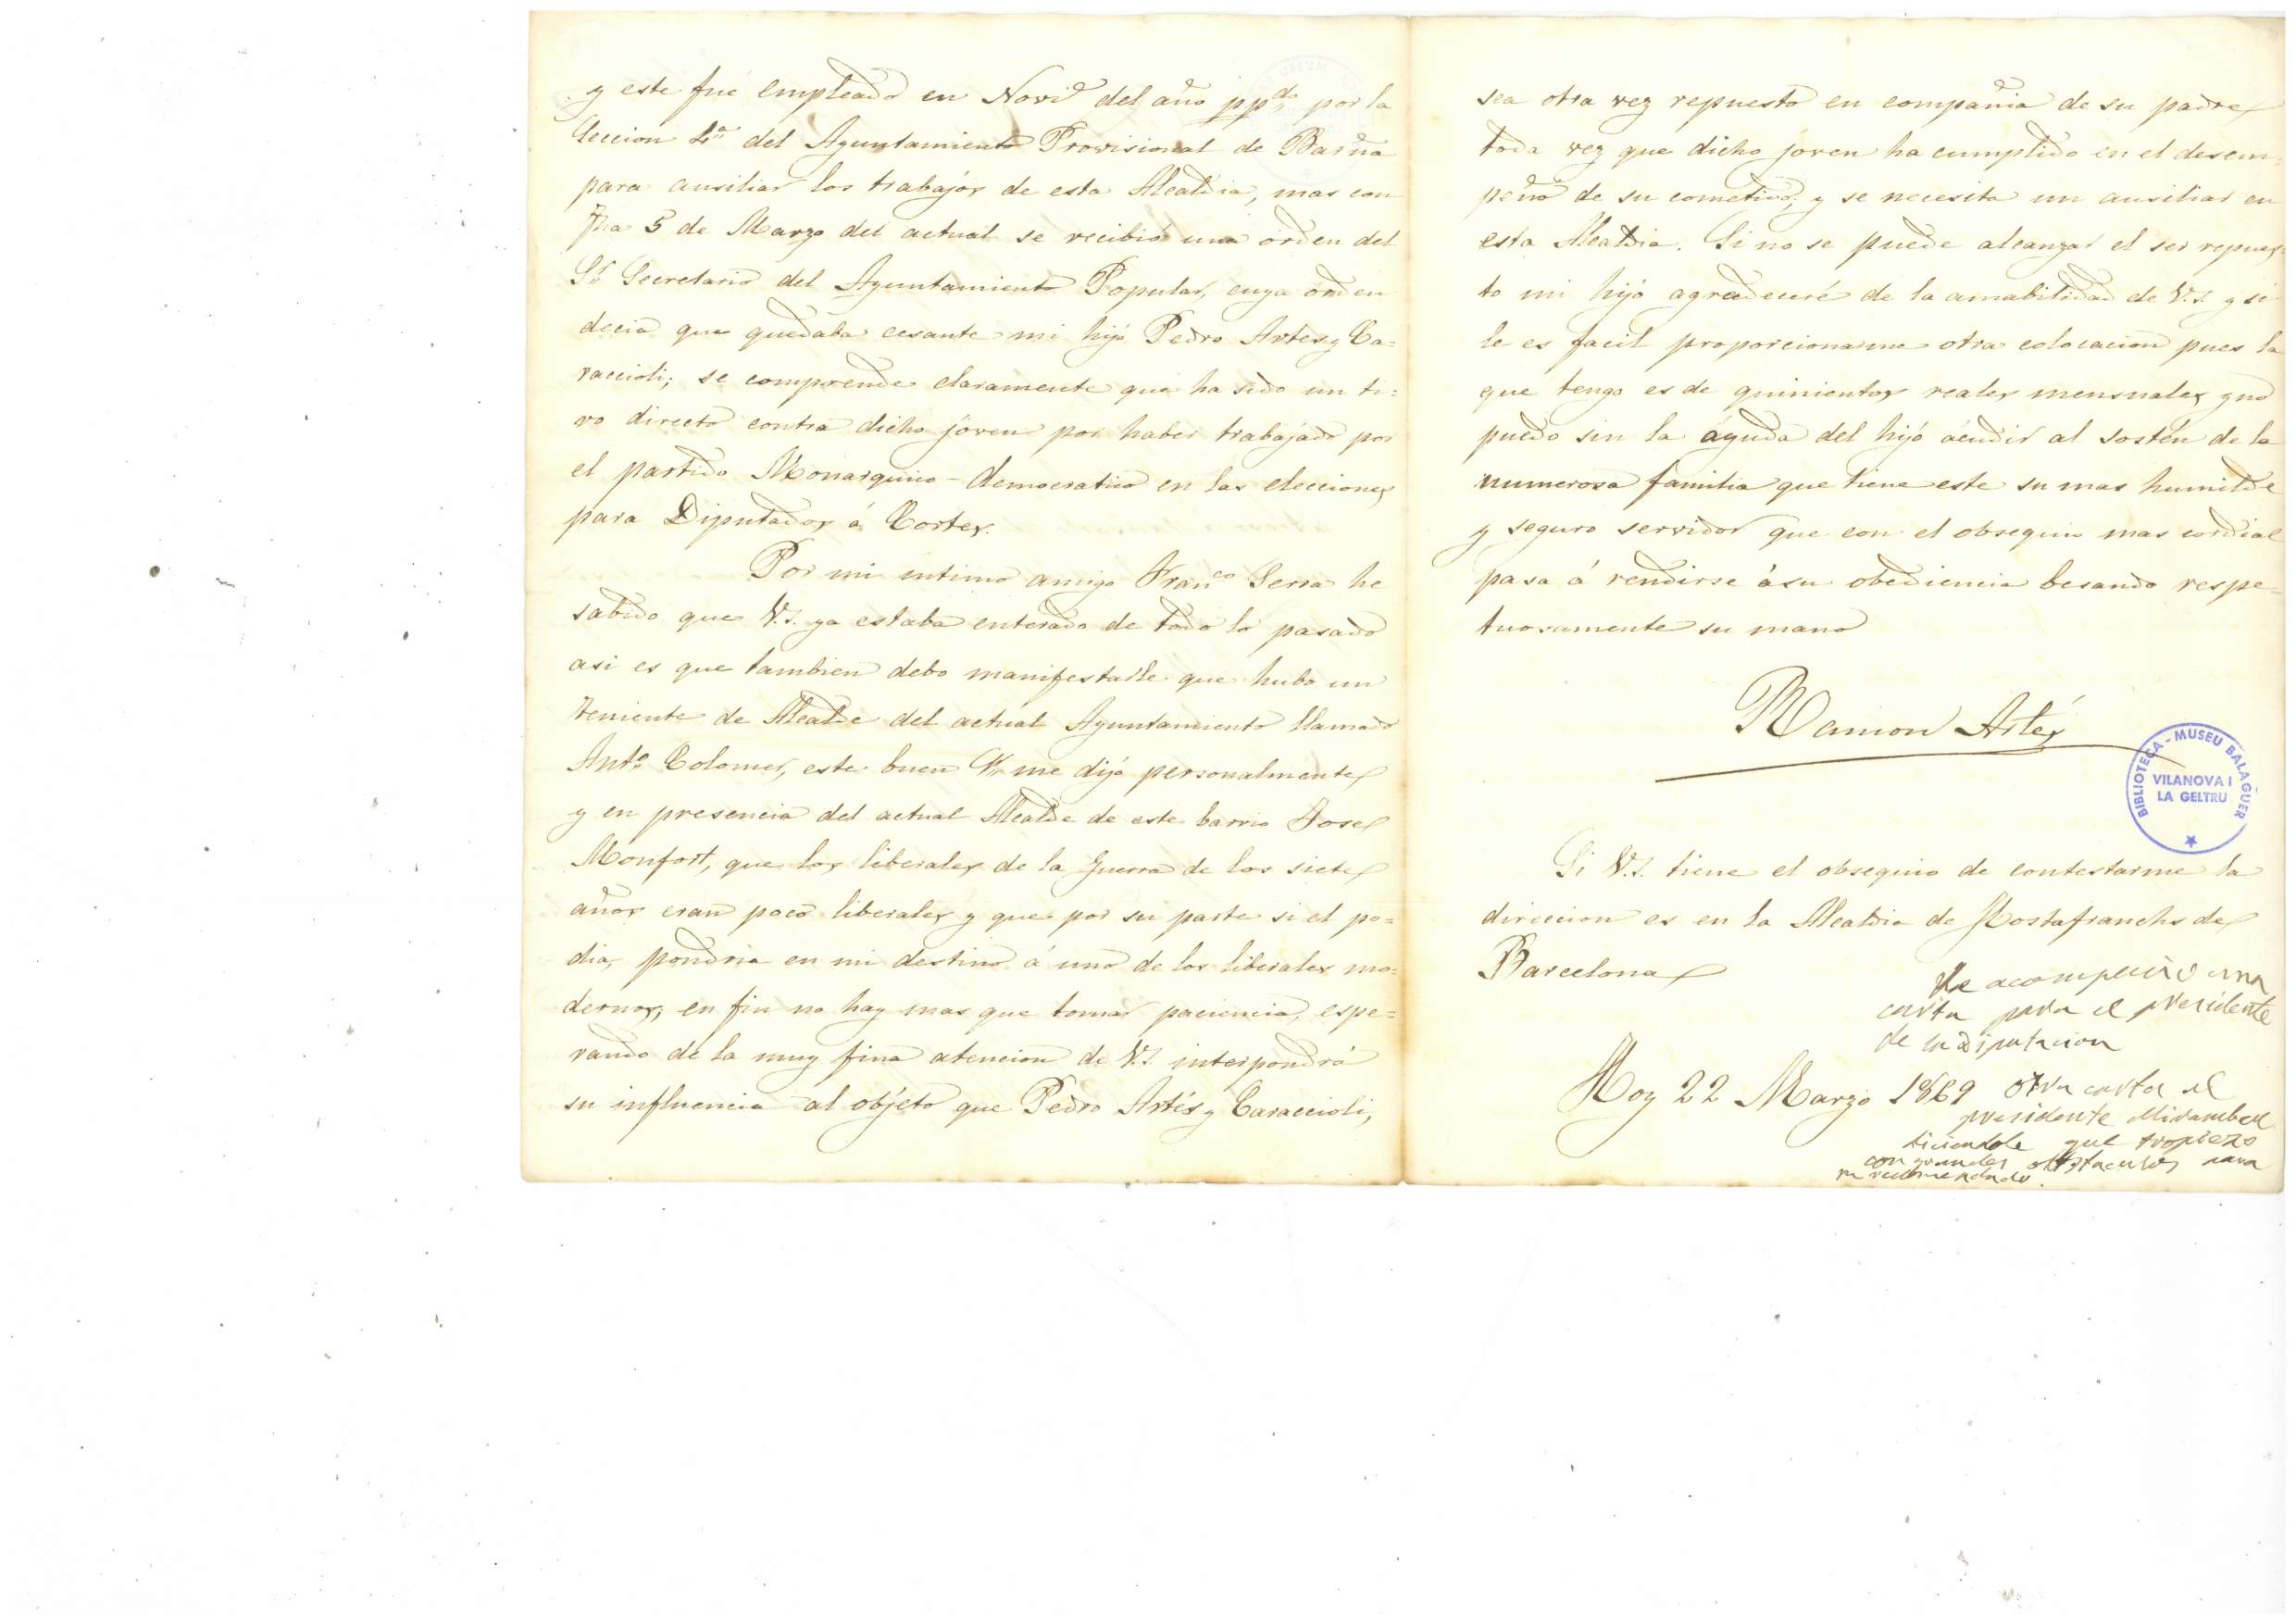 y este fué empleado en Novi͏e del año ppdo por la
Seccion 4ª del Ayuntamiento Provisional de Barña
para ausiliar los trabajós de esta Alcaldia, mas con
fha 5 de Marzo del actual se recibió una órden del
Sr Secretario del Ayuntamiento Popular, cuya órden
decia que quedaba cesante mi hijó Pedro Artes y Ca=
raccioli; se comprende claramente que ha sido un ti=
ro directo contra dicho jóven por haber trabajado por
el partido Monarquico-democratico en las elecciones
para Diputados á Cortes.
Por mi intimo amigo Franco Serra he
sabido que V.S. ya estaba enterado de todo lo pasado
asi es que tambien debo manifestarle que hubo un
teniente de Alcalde del actual Ayuntamiento llamado
Anto Colomer, este buen Sr me dijó personalmente
y en presencia del actual Alcalde de este barrio Jose
Monfort, que los liberales de la Guerra de los siete
años eran poco liberales y que por su parte si el po=
dia, pondria en mi destino á uno de los liberales mo=
dernos, en fin no hay mas que tomar paciencia, espe=
rando de la muy fina atencion de V.S. interpondrá
su influencia al objéto que Pedro Artés y Caraccioli,
sea otra vez repuesto en compañia de su padre
toda vez que dicho jóven ha cumplido en el desem=
peño de su cometido, y se necesita un ausiliar en
esta Alcaldia. Si no se puede alcanzar el ser repues=
to mi hijó agradeceré de la amabilidad de V.S. y si
le es facil proporcionarme otra colocacion pues la
que tengo es de quinientos reales mensuales y no
puedo sin la ayuda del hijó acudir al sostén de la
numerosa familia que tiene este su mas humilde
y seguro servidor que con el obsequio mas cordial
pasa á rendirse á su obediencia besando respe=
tuosamente su mano
Ramon Artés
BIBLIOTECA-MUSEU BALAGUER
VILANOVA I
LA GELTRU
Si V.S. tiene el obsequio de contestarme la
direccion es en la Alcaldia de Hostafranchs de
Barcelona
Le acompaño una
carta para el presidente
de la diputacion
Hoy 22 Marzo 1869 otra carta al
presidente Mirambell
diciendole que tropiezo
con grandes obstaculos para
mi recomendado.